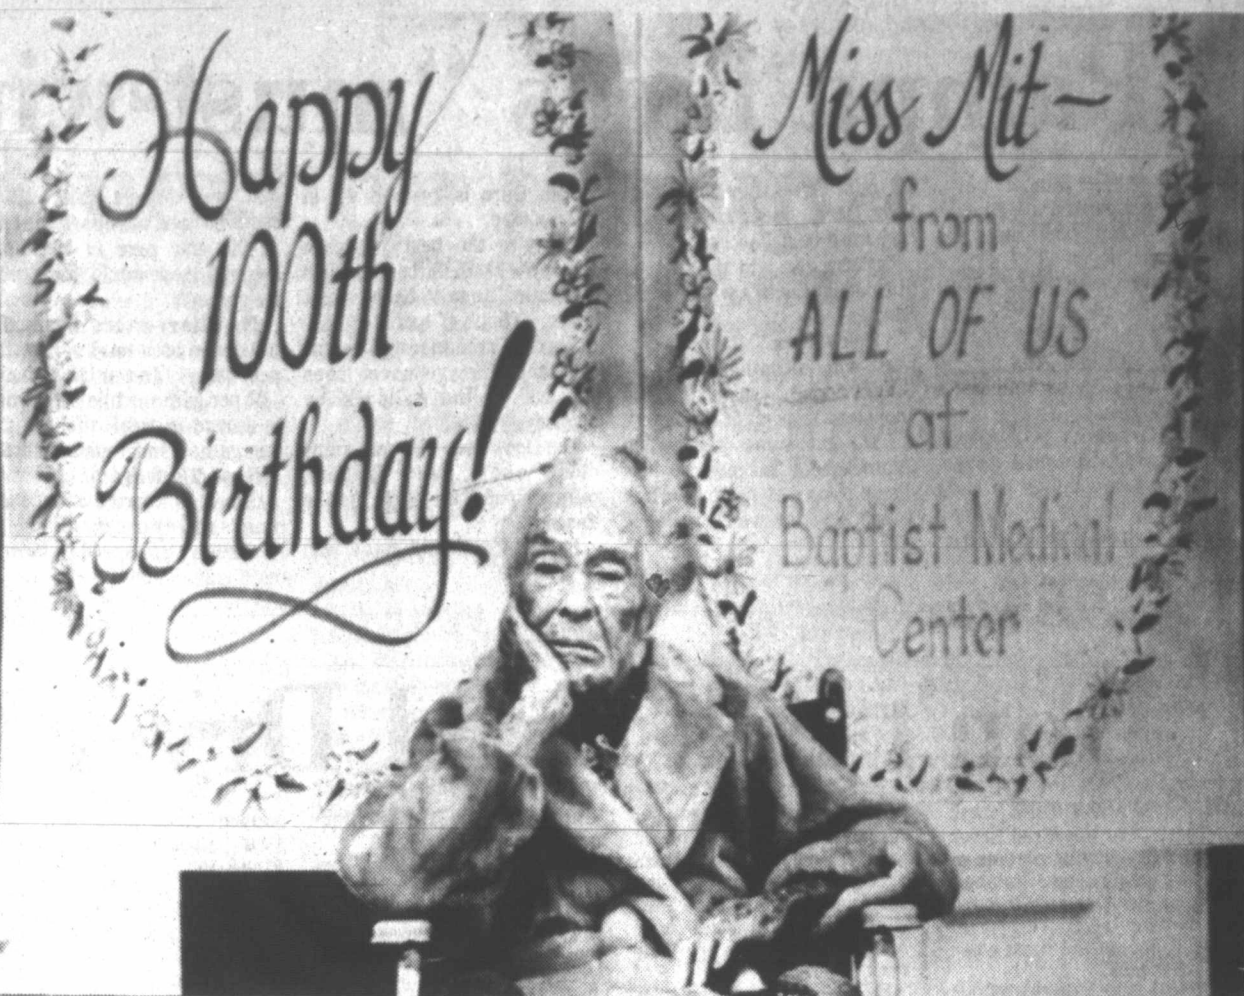 Happy
100th
Birthday!
Miss Mit~
from
ALL OF US
at
Baptist Medical
Center